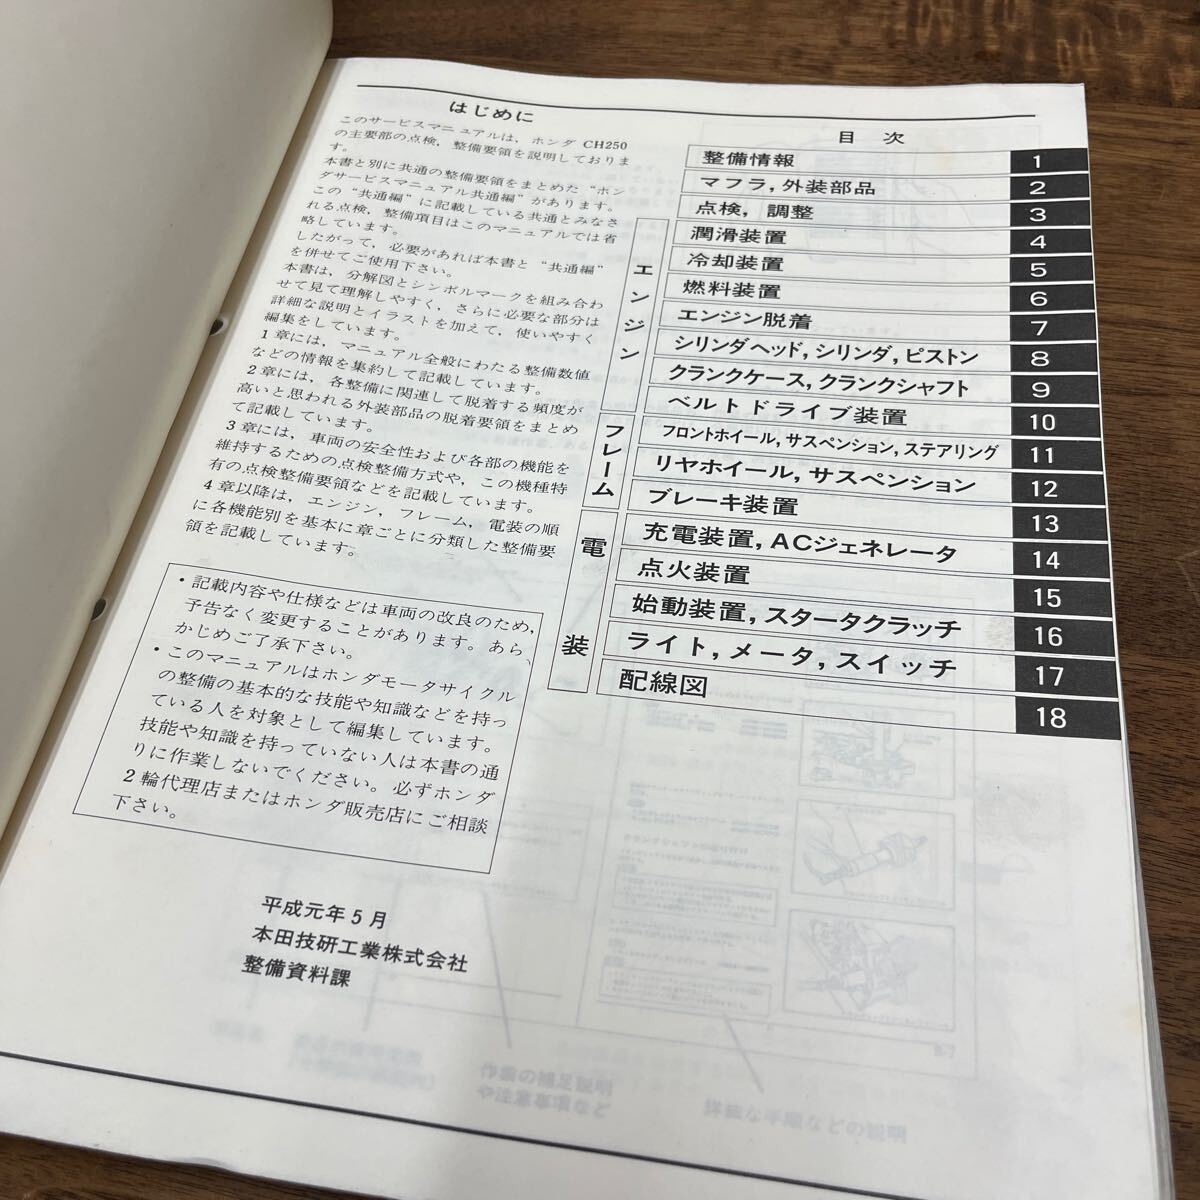 はじめに
このサービスマニュアルは，ホンダ CH250
の主要部の点検，整備要領を説明しておりま
す。
本書と別に共通の整備要領をまとめた“ホン
ダサービスマニュアル共通編”があります。
この“共通編”に記載している共通とみなさ
れる点検，整備項目はこのマニュアルでは省
略しています。
したがって，必要があれば本書と“共通編”
を併せてご使用下さい。
本書は，分解図とシンボルマークを組み合わ
せて見て理解しやすく，さらに必要な部分は
詳細な説明とイラストを加えて，使いやすく
編集をしています。
1 章には，マニュアル全般にわたる整備数値
などの情報を集約して記載しています。
2 章には，各整備に関連して脱着する頻度が
高いと思われる外装部品の脱着要領をまとめ
て記載しています。
3 章には，車両の安全性および各部の機能を
維持するための点検整備方式や，この機種特
有の点検整備要領などを記載しています。
4 章以降は，エンジン，フレーム，電装の順
に各機能別を基本に章ごとに分類した整備要
領を記載しています。
・記載内容や仕様などは車両の改良のため，
予告なく変更することがあります。あら
かじめご了承下さい。
・このマニュアルはホンダモータサイクル
の整備の基本的な技能や知識などを持っ
ている人を対象として編集しています。
技能や知識を持っていない人は本書の通
りに作業しないでください。必ずホンダ
2 輪代理店またはホンダ販売店にご相談
下さい。
平成元年 5 月
本田技研工業株式会社
整備資料課
目 次
整備情報 1
マフラ，外装部品 2
点検，調整 3
エンジン
潤滑装置 4
冷却装置 5
燃料装置 6
エンジン脱着 7
シリンダヘッド，シリンダ，ピストン 8
クランクケース，クランクシャフト 9
ベルトドライブ装置 10
フレーム
フロントホイール，サスペンション，ステアリング 11
リヤホイール，サスペンション 12
ブレーキ装置 13
電装
充電装置，ACジェネレータ 14
点火装置 15
始動装置，スタータクラッチ 16
ライト，メータ，スイッチ 17
配線図 18
作業の補足説明
や注意事項など
詳細な手順などの説明